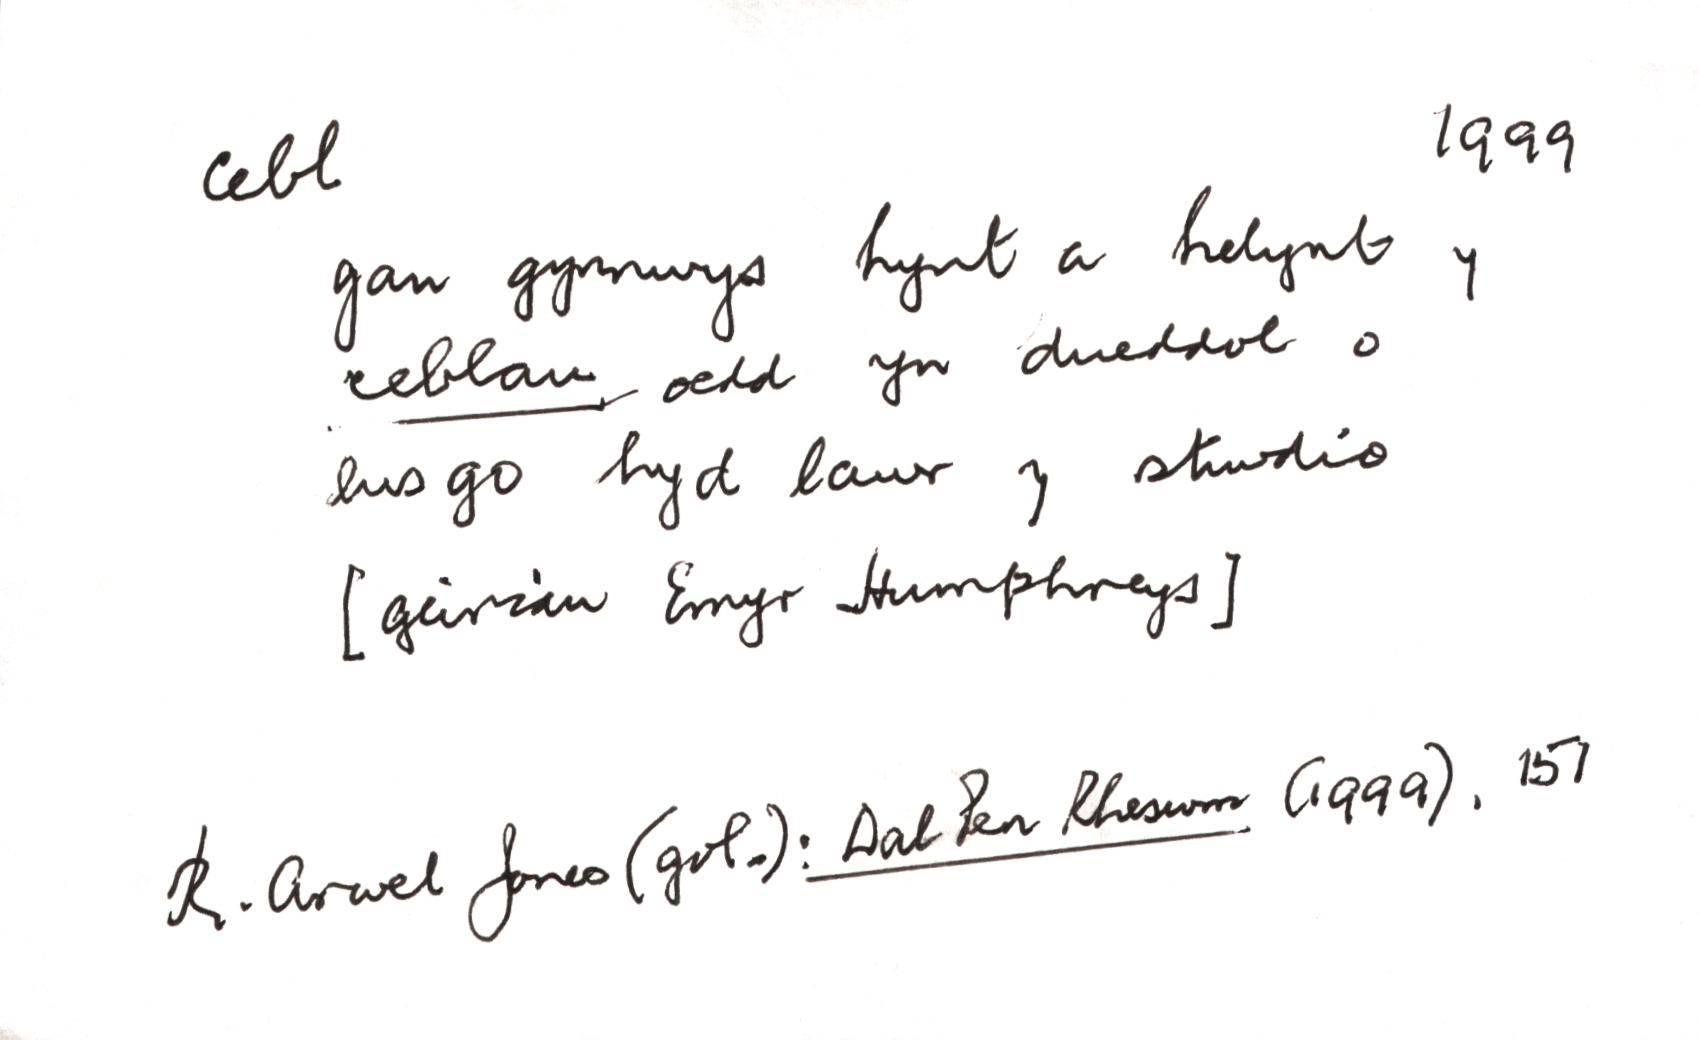 cebl 1999
gan gynnwys hynt a helynt y
ceblau oedd yn dueddol o
lusgo hyd lawr y stiwdio
[geiriau Emyr Humphreys]
R. Arwel Jones (gol.): Dal Pen Rheswm (1999), 157